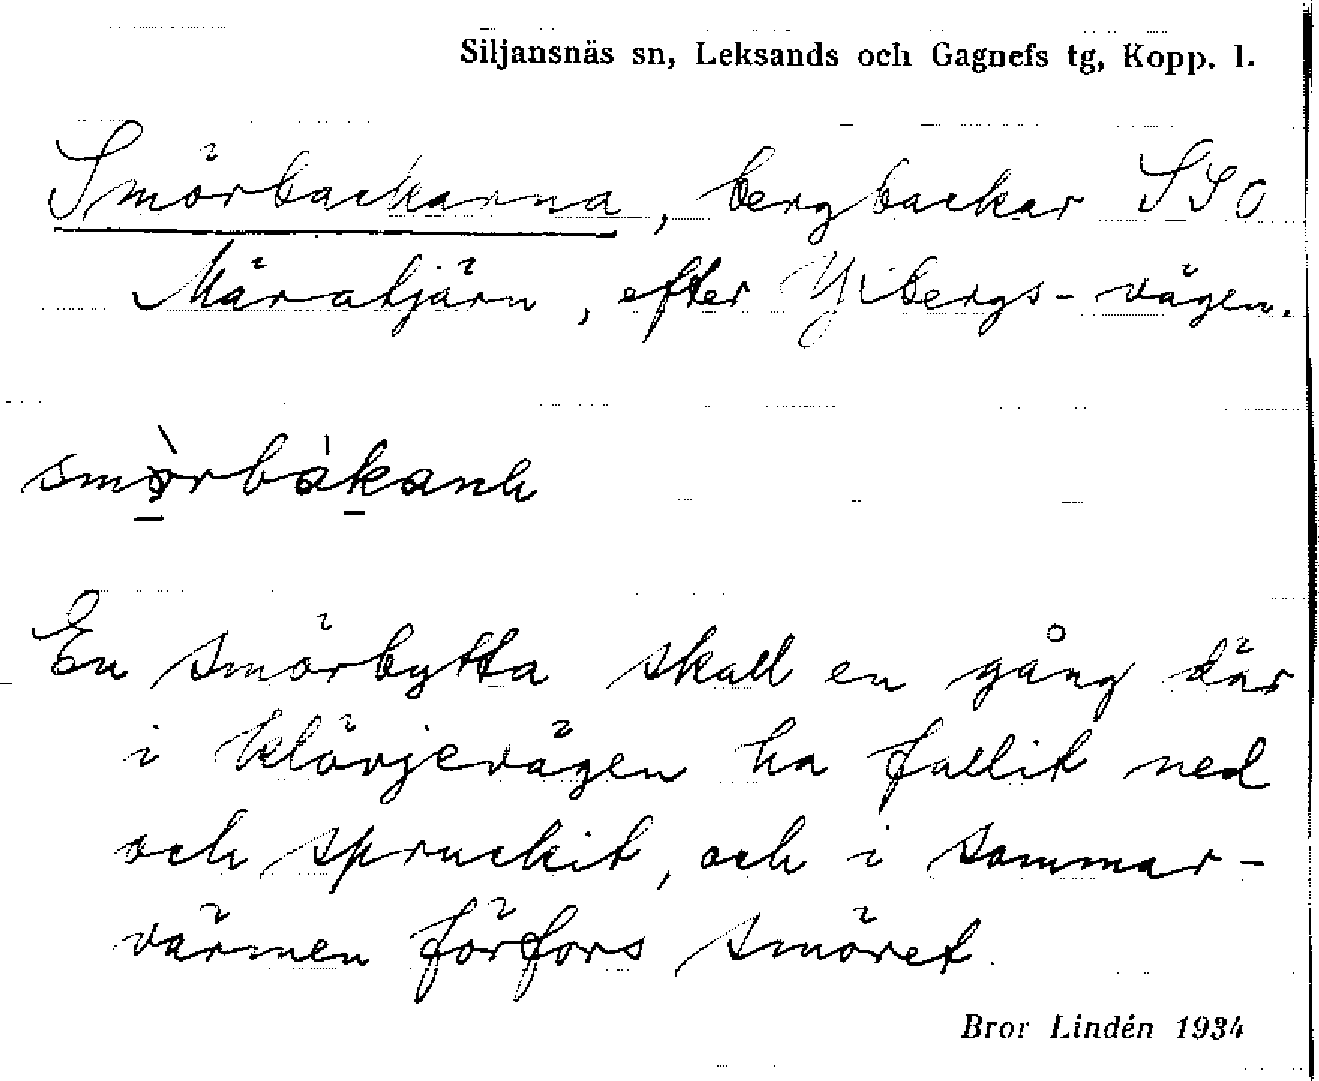 Siljansnäs sn, Leksands och Gagnefs tg, Kopp. l.
Smörbackarna, bergbackar SSO
Märatjärn, efter Yxbergs-vägen.
smörbakanh
En smörbytta skall en gång där
i klövjevägen ha fallit ned
och spruckit, och i sommar-
värmen förfors smöret.
Bror Lindén 1934